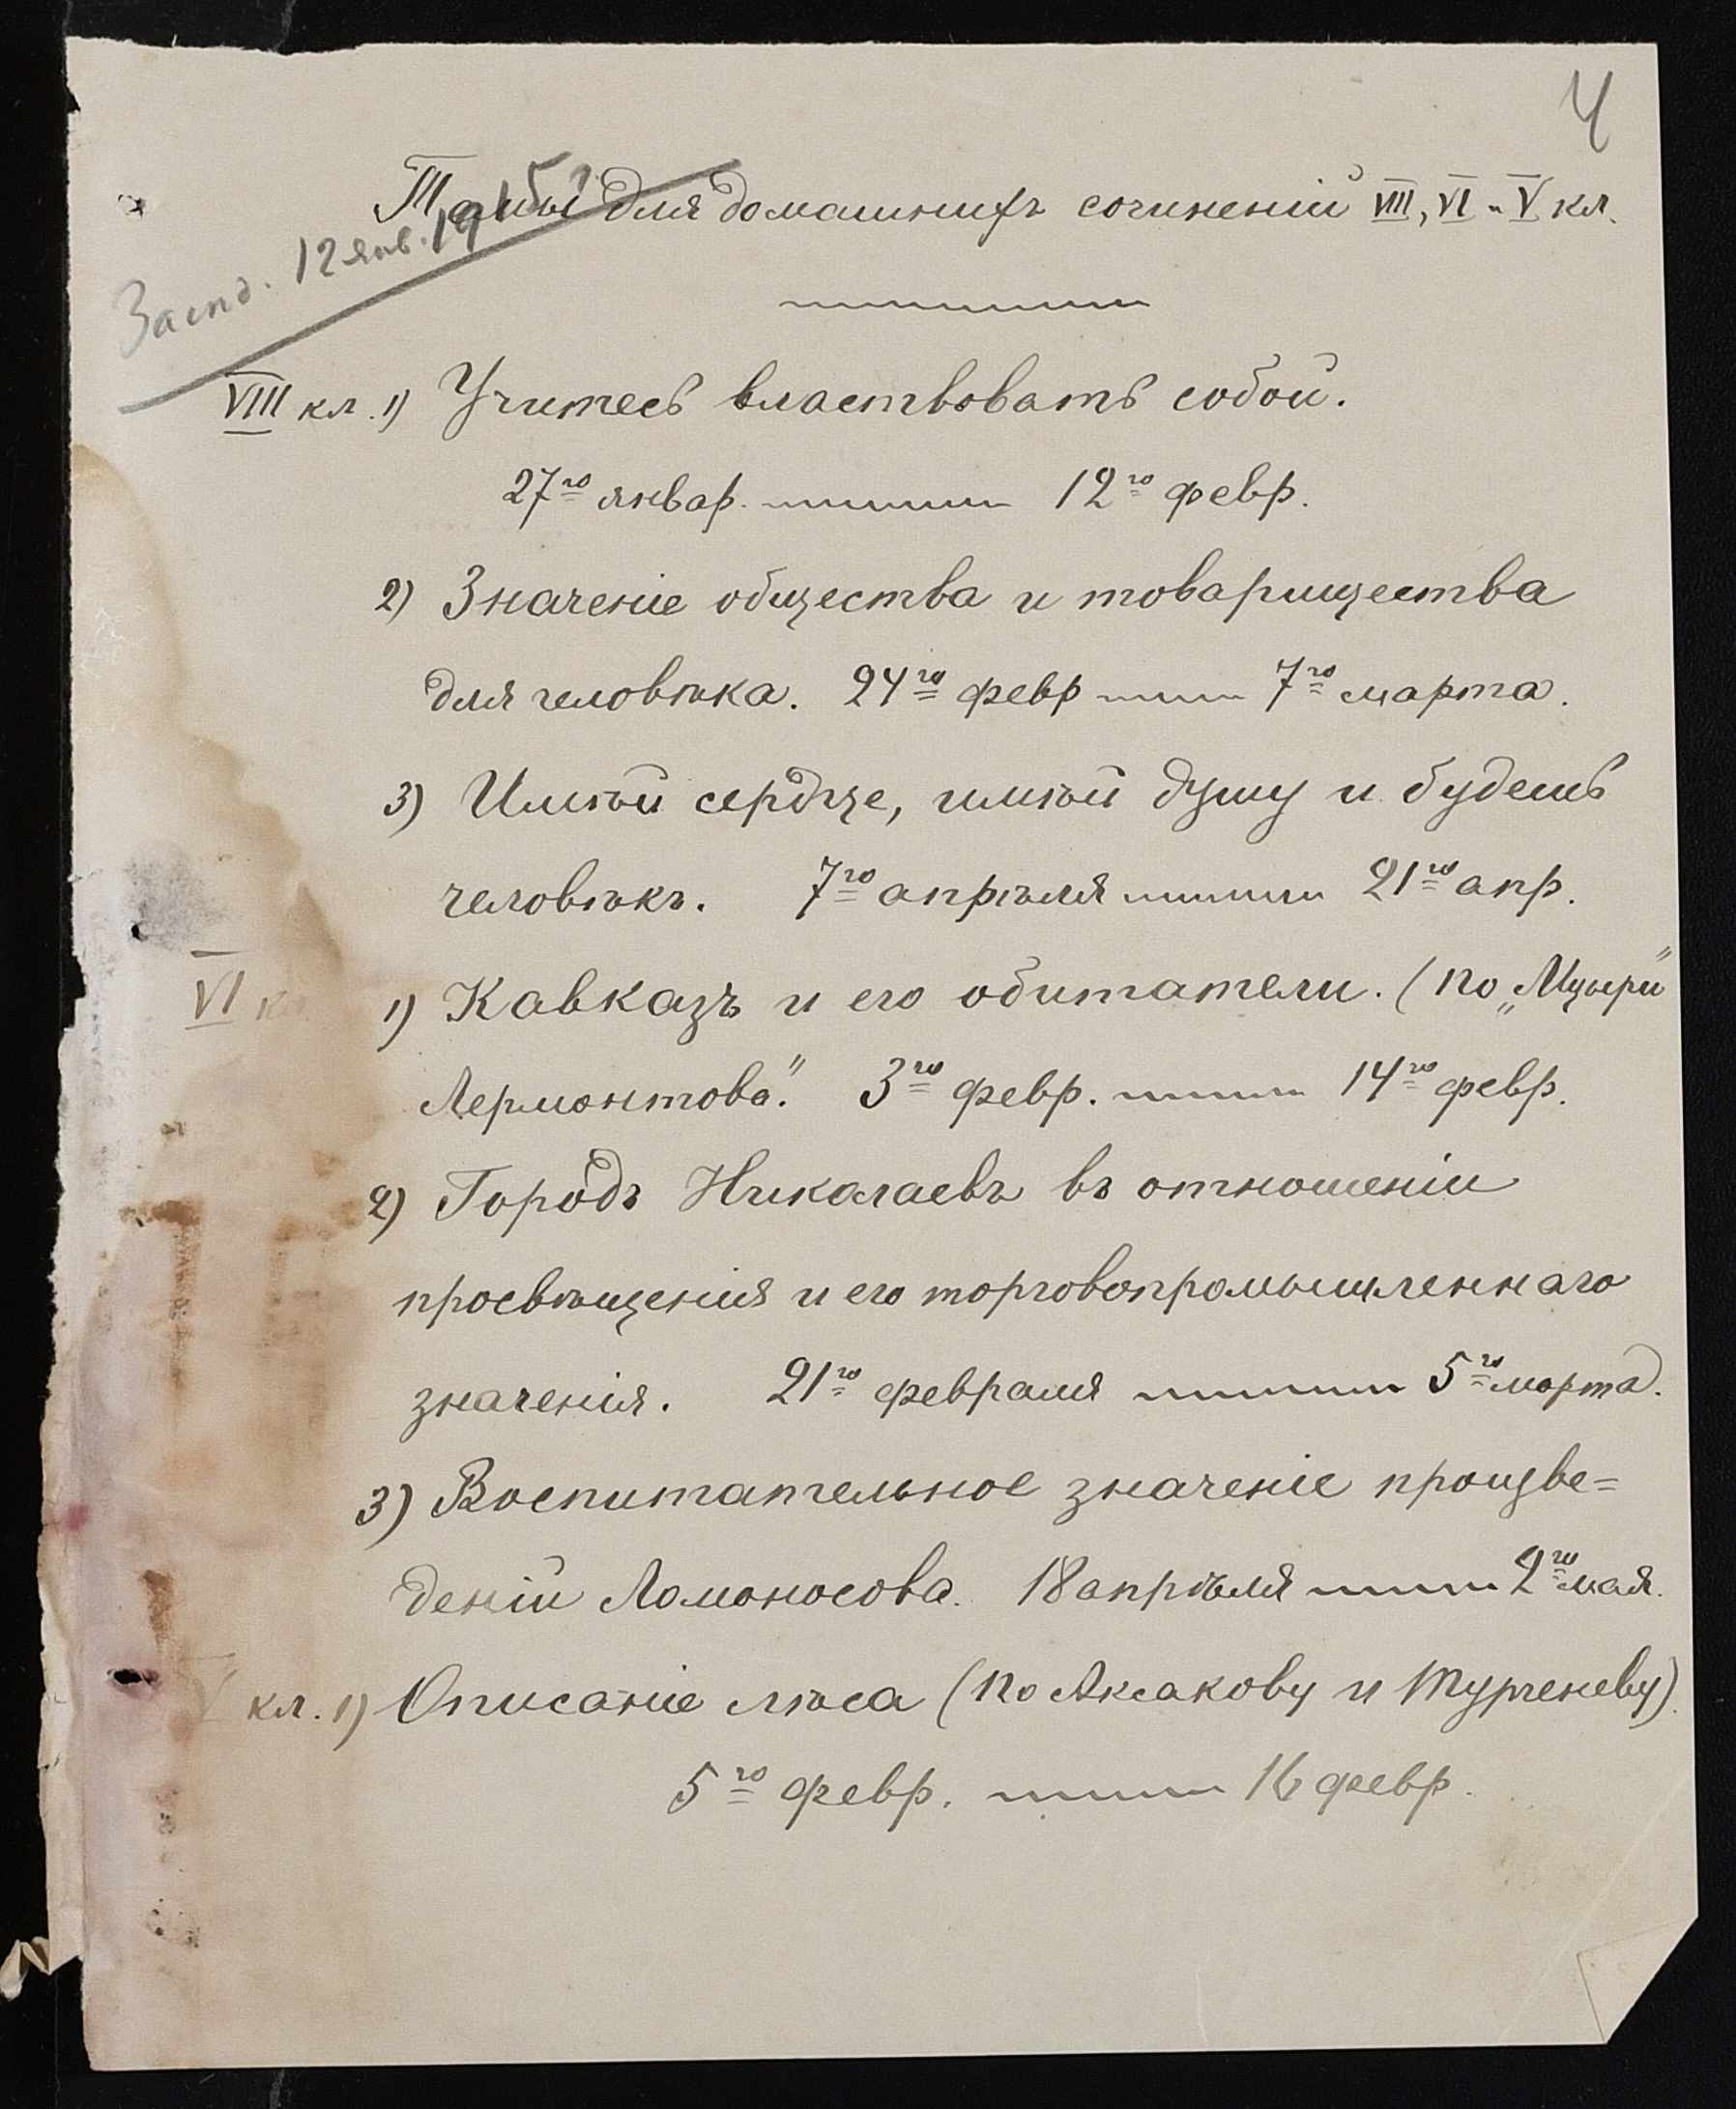 4
Темы для домашнихъ сочиненій VIII, VI и V кл.
Засѣд. 12 янв. 1915 г.
VIII кл. 1) Учитесь властвовать собой.
27го январ. 12го февр.
2) Значеніе общества и товарищества
для человѣка. 24го февр 7го марта.
3) Имѣй сердце, имѣй душу и будешь
человѣкъ. 7го апрѣля 21го апр.
VI кл. 1) Кавказъ и его обитатели. (по „Мцыри"
Лермонтова". 3го февр. 14го февр.
2) Городъ Николаевъ въ отношеніи
просвѣщенія и его торговопромышленнаго
значенія. 21го февраля 5го марта.
3) Воспитательное значеніе произве=
деній Ломоносова. 18 апрѣля 2го мая.
V кл. 1) Описаніе лѣса (по Аксакову и Тургеневу).
5го февр. 16 февр.